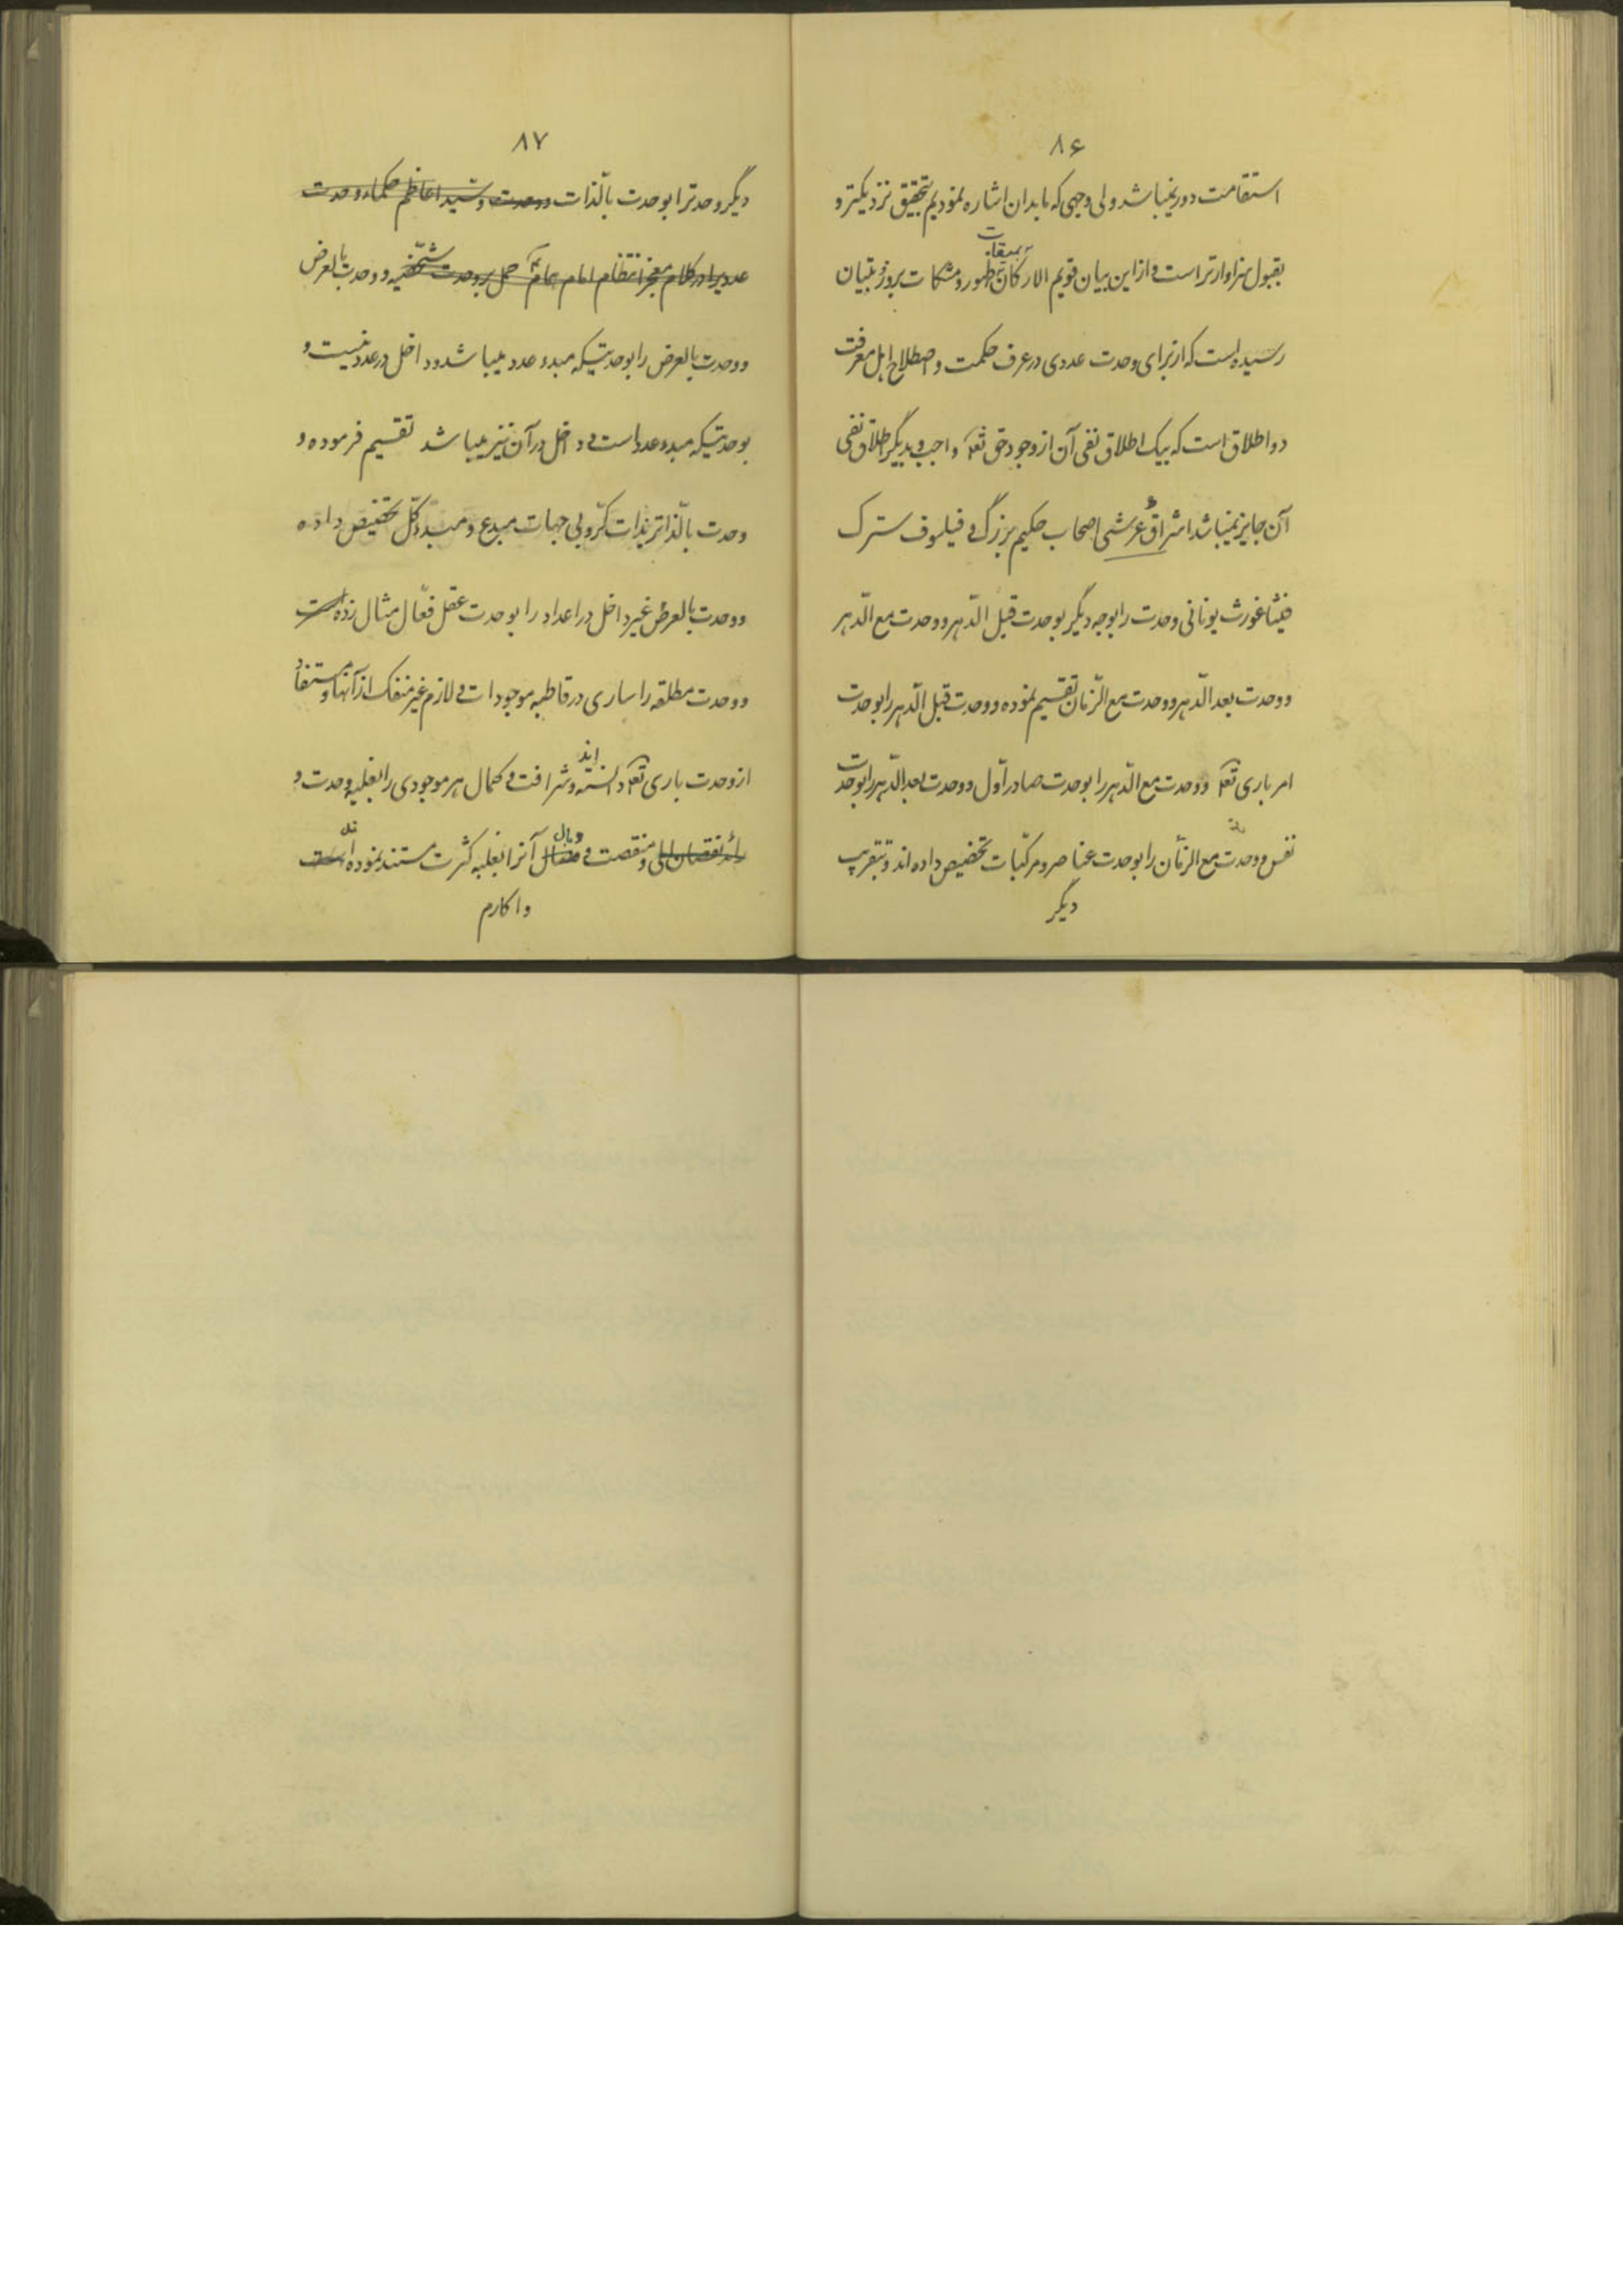 ۸۶
استقامت دور نمیباشد ولی وجهی که مابدان اشاره نمودیم بتحقیق نزدیکتر و
بقبول سزاوارتر است و از این بیان قویم الارکان بمیقات ظهور و مشکات بروز و تبیان
رسیده است که از برای وحدت عددی در عرف حکمت و اصطلاح اهل معرفت
دو اطلاق است که بیک اطلاق نفی آن از وجود حق تعا واجب و بدیگر اطلاق نفی
آن جایز نمیباشد اشراق عرشی اصحاب حکیم بزرگ و فیلسوف سترک
فیثاغورث یونانی وحدت را بوجه دیگر بوحدت قبل الدّهر و وحدت مع الدّهر
و وحدت بعد الدّهر و وحدت مع الزّمان تقسیم نموده و وحدت قبل الدّهر را بوحدت
امر باری تعا و وحدت مع الدّهر را بوحدت صادر اوّل و وحدت بعد الدّهر را بوحدت
نفس و وحدت مع الزمان را بوحدت عناصر و مرکبات تخصیص داده اند و بتقریب
دیگر
۸۷
دیگر وحدترا بوحدت بالّذات و وحدت و سید اعاظم حکماء وحدت
عددیرا در کلام معجز انتظام امام همام حمل بر وحدت شخصیّه و وحدت بالعرض
و وحدت بالعرض را بوحدتیکه مبدء عدد میباشد و داخل در عدد نیست و
بوحدتیکه مبدء عدد است و داخل در آن نیز میباشد تقسیم فرموده و
وحدت بالّذاترا بذات کرّوبی جهات مبدع و مبدء کلّ تخصیص داده
و وحدت بالعرض غیر داخل در اعداد را بوحدت عقل فعّال مثال زده است
و وحدت مطلقه را ساری در قاطبه موجودات و لازم غیر منفک از آنها و مستفاد
از وحدت باری تعا دانسته اند و شرافت و کمال هر موجودی را بغلبه وحدت و
و منقصت و وبال آنرا بغلبه کثرت مستند نموده اند است
و اکارم